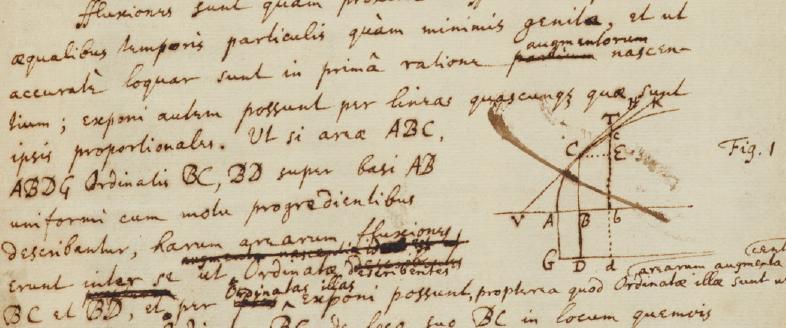 fluxiones sunt quam
æqualibus temporis particulis quàm minimis genitæ, et ut
accuratè loquar sunt in primâ ratione augmentorum nascen-
tium; exponi autem possunt per lineas quascunqȝ quæ sunt
ipsis proportionales. Ut si areæ ABC,
ABDG Ordinatis BC, BD super basi AB
uniformi cum motu progredientibus
describantur, harum arearum fluxiones
erunt inter se ut Ordinatæ describentes
BC et BD, et per Ordinatas illas exponi possunt, propterea quod Ordinatæ illæ sunt ut
arearum augmenta
BC de loco suo BC in locum quemvis
Fig. 1
T H K
C c E
V A B b
G D d